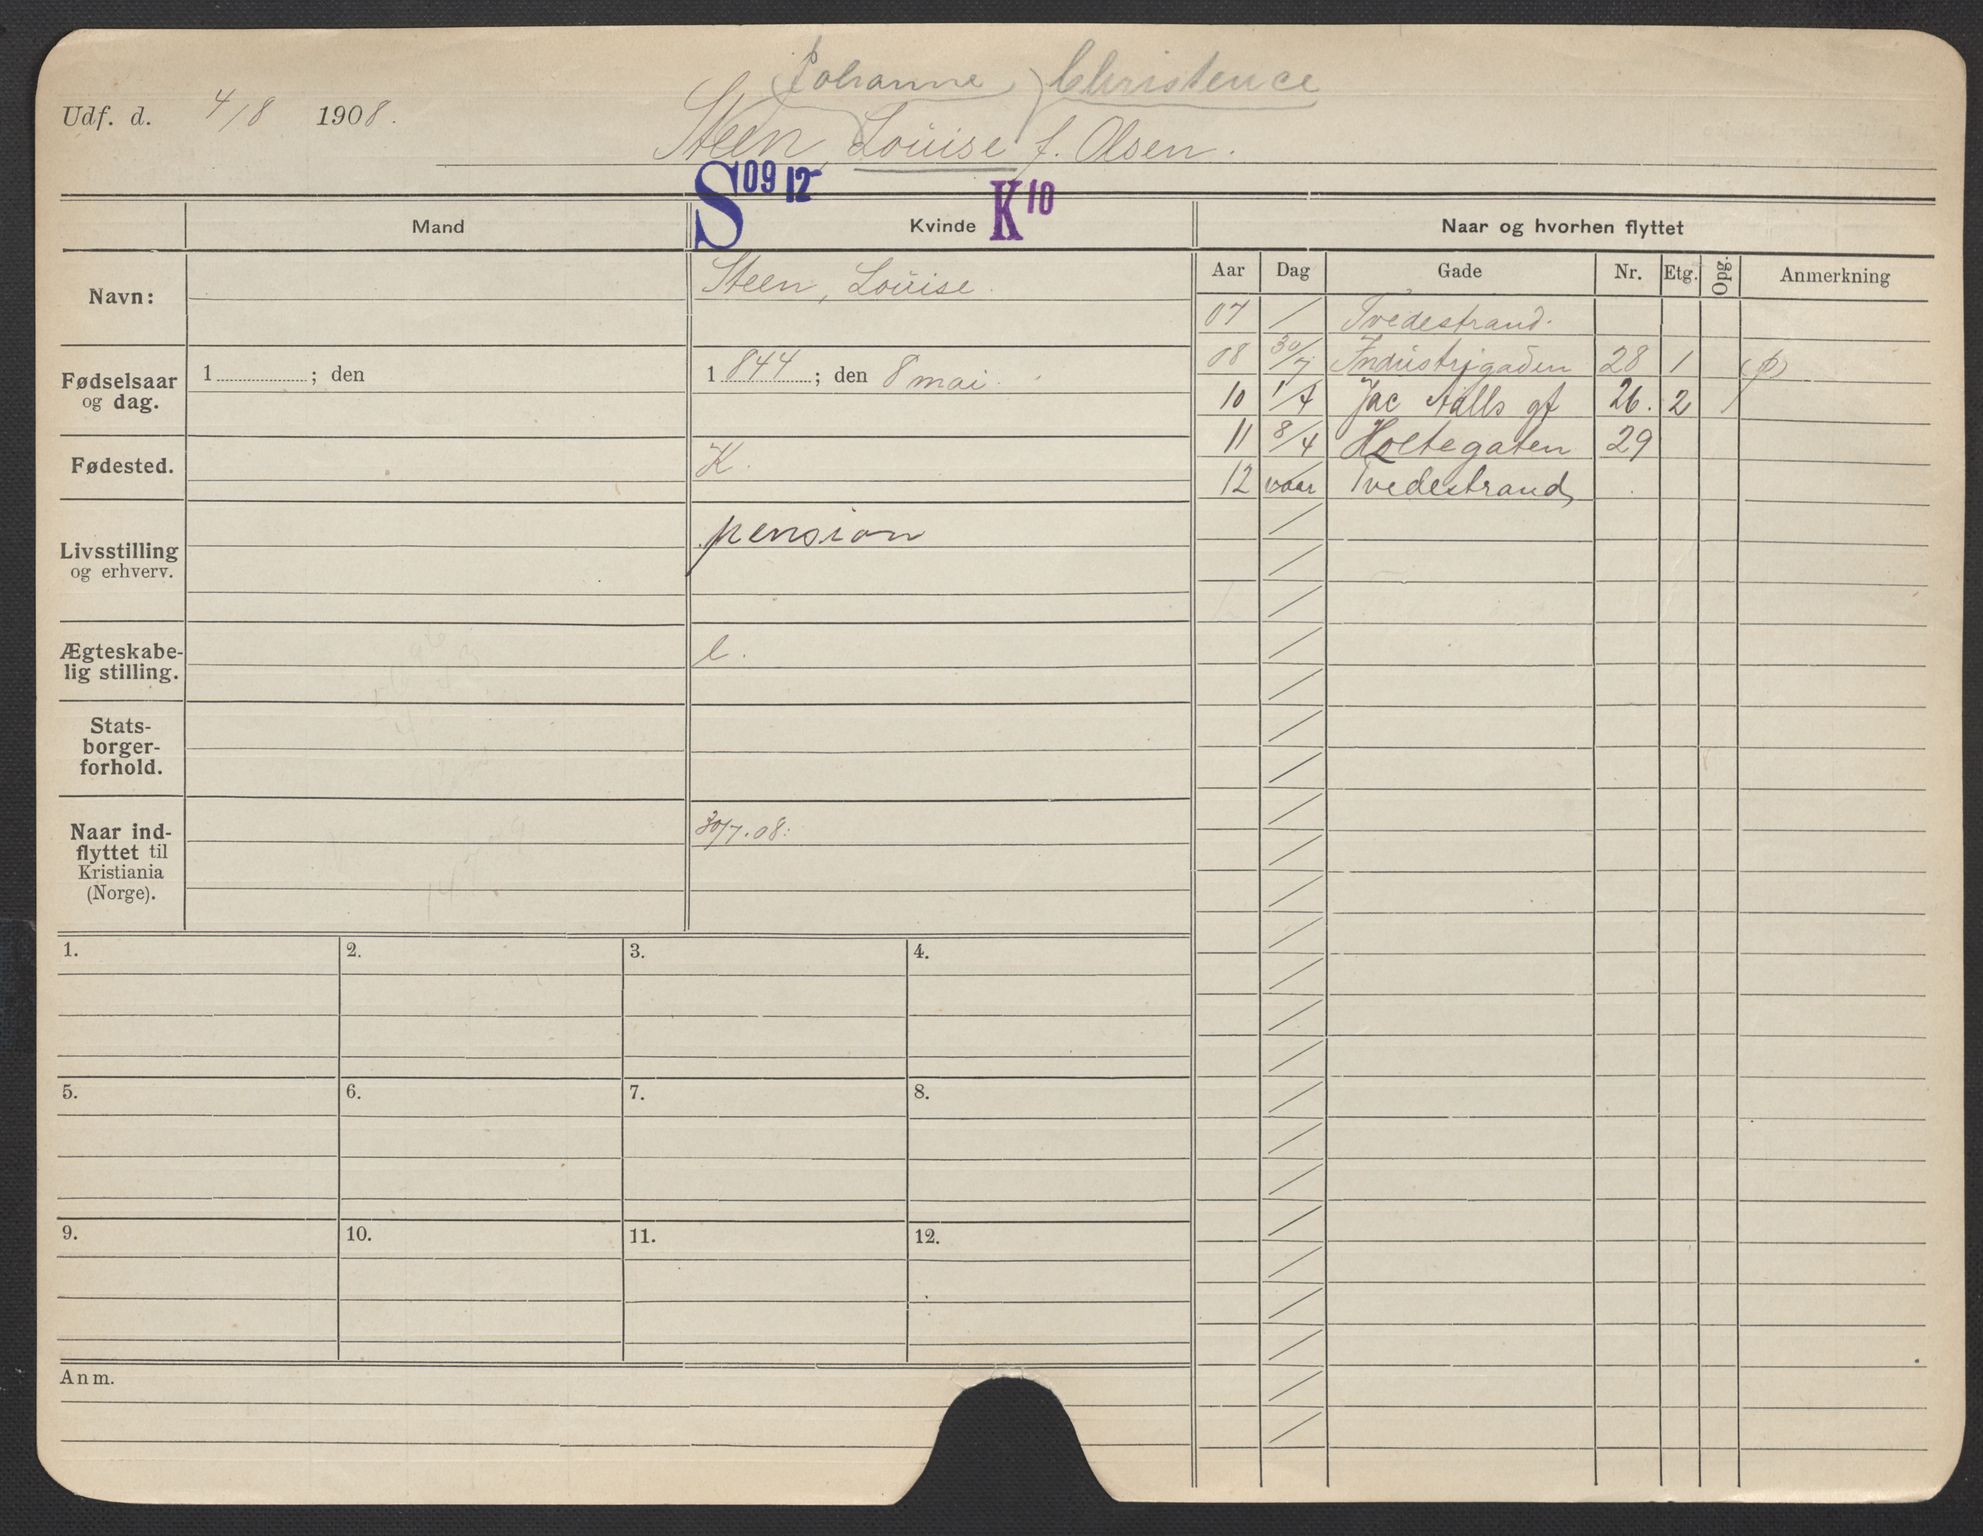 Johanne Christence
Udf. d. 4/8 1908.
Steen, Louise f. Olsen.
S 09 12 K 10
Mand Kvinde Naar og hvorhen flyttet
Aar Dag Gade Nr. Etg. Opg. Anmerkning
Navn: Steen, Louise.
07 / Tvedestrand.
08 30/7 Industrigaden 28 1 (p)
10 1/4 Jac Aalls gt 26. 2
11 8/4 Holtegaten 29
12 vaar Tvedestrand
Fødselsaar
og dag.
1 ; den
1844; den 8 mai.
Fødested. K.
Livsstilling
og erhverv.
pension
Ægteskabe-
lig stilling.
e.
Stats-
borger-
forhold.
Naar ind-
flyttet til
Kristiania
(Norge).
30/7.08.
1. 2. 3. 4.
5. 6. 7. 8.
9. 10. 11. 12.
Anm.